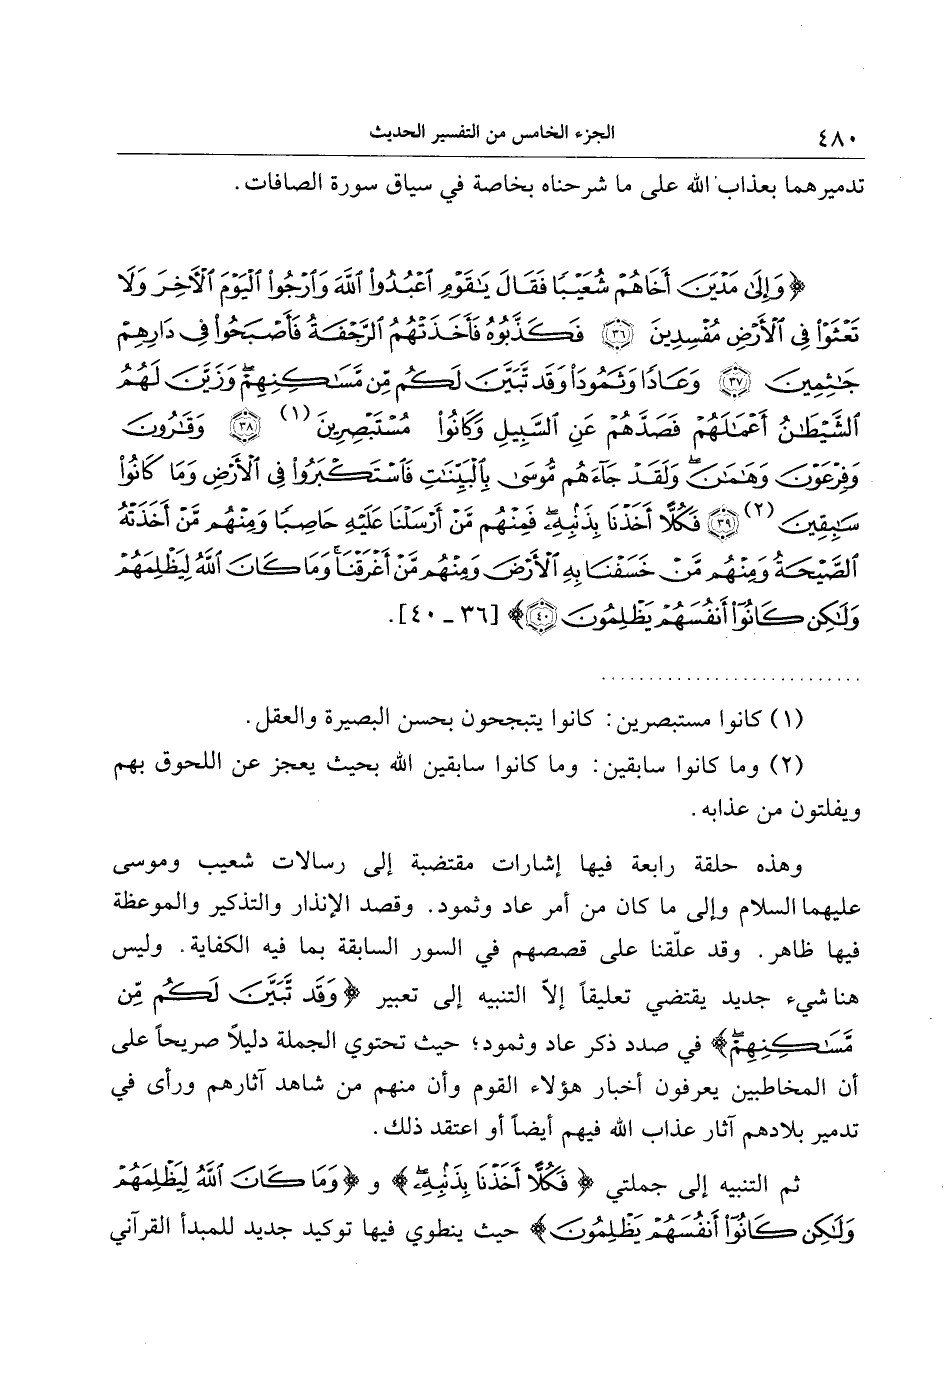 ٤٨٠ الجزء الخامس من التفسير الحديث
تدميرهما بعذاب الله على ما شرحناه بخاصة في سياق سورة الصافات.
﴿وَإِلَىٰ مَدْيَنَ أَخَاهُمْ شُعَيْبًا فَقَالَ يَٰقَوْمِ ٱعْبُدُواْ ٱللَّهَ وَٱرْجُواْ ٱلْيَوْمَ ٱلْأَخِرَ وَلَا
تَعْثَوْاْ فِى ٱلْأَرْضِ مُفْسِدِينَ ﴿٣٦﴾ فَكَذَّبُوهُ فَأَخَذَتْهُمُ ٱلرَّجْفَةُ فَأَصْبَحُواْ فِى دَارِهِمْ
جَٰثِمِينَ ﴿٣٧﴾ وَعَادًا وَثَمُودَاْ وَقَد تَّبَيَّنَ لَكُم مِّن مَّسَٰكِنِهِمْ ۖ وَزَيَّنَ لَهُمُ
ٱلشَّيْطَٰنُ أَعْمَٰلَهُمْ فَصَدَّهُمْ عَنِ ٱلسَّبِيلِ وَكَانُواْ مُسْتَبْصِرِينَ (١) ﴿٣٨﴾ وَقَٰرُونَ
وَفِرْعَوْنَ وَهَٰمَٰنَ ۖ وَلَقَدْ جَآءَهُم مُّوسَىٰ بِٱلْبَيِّنَٰتِ فَٱسْتَكْبَرُواْ فِى ٱلْأَرْضِ وَمَا كَانُواْ
سَٰبِقِينَ (٢) ﴿٣٩﴾ فَكُلًّا أَخَذْنَا بِذَنۢبِهِۦ ۖ فَمِنْهُم مَّنْ أَرْسَلْنَا عَلَيْهِ حَاصِبًا وَمِنْهُم مَّنْ أَخَذَتْهُ
ٱلصَّيْحَةُ وَمِنْهُم مَّنْ خَسَفْنَا بِهِ ٱلْأَرْضَ وَمِنْهُم مَّنْ أَغْرَقْنَا ۚ وَمَا كَانَ ٱللَّهُ لِيَظْلِمَهُمْ
وَلَٰكِن كَانُوٓاْ أَنفُسَهُمْ يَظْلِمُونَ ﴿٤٠﴾﴾ [٣٦ ـ ٤٠].
(١) كانوا مستبصرين: كانوا يتبجحون بحسن البصيرة والعقل.
(٢) وما كانوا سابقين: وما كانوا سابقين الله بحيث يعجز عن اللحوق بهم
ويفلتون من عذابه.
وهذه حلقة رابعة فيها إشارات مقتضبة إلى رسالات شعيب وموسى
عليهما السلام وإلى ما كان من أمر عاد وثمود. وقصد الإنذار والتذكير والموعظة
فيها ظاهر. وقد علّقنا على قصصهم في السور السابقة بما فيه الكفاية. وليس
هنا شيء جديد يقتضي تعليقاً إلاّ التنبيه إلى تعبير ﴿وَقَد تَّبَيَّنَ لَكُم مِّن
مَّسَٰكِنِهِمْ ۖ﴾ في صدد ذكر عاد وثمود؛ حيث تحتوي الجملة دليلاً صريحاً على
أن المخاطبين يعرفون أخبار هؤلاء القوم وأن منهم من شاهد آثارهم ورأى في
تدمير بلادهم آثار عذاب الله فيهم أيضاً أو اعتقد ذلك.
ثم التنبيه إلى جملتي ﴿فَكُلًّا أَخَذْنَا بِذَنۢبِهِۦ ۖ﴾ و ﴿وَمَا كَانَ ٱللَّهُ لِيَظْلِمَهُمْ
وَلَٰكِن كَانُوٓاْ أَنفُسَهُمْ يَظْلِمُونَ﴾ حيث ينطوي فيها توكيد جديد للمبدأ القرآني